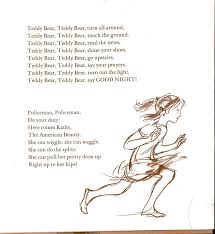 Teddy Bear, Teddy Bear, turn all around,
Teddy Bear, Teddy Bear, touch the ground.
Teddy Bear, Teddy Bear, read the news,
Teddy Bear, Teddy Bear, shine your shoes.
Teddy Bear, Teddy Bear, go upstairs,
Teddy Bear, Teddy Bear, say your prayers.
Teddy Bear, Teddy Bear, turn out the light,
Teddy Bear, Teddy Bear, say GOOD NIGHT!
Policeman, Policeman,
Do your duty:
Here comes Kathy,
The American Beauty.
She can wiggle, she can waggle
She can do the splits;
She can pull her pretty dress up
Right up to her hips!